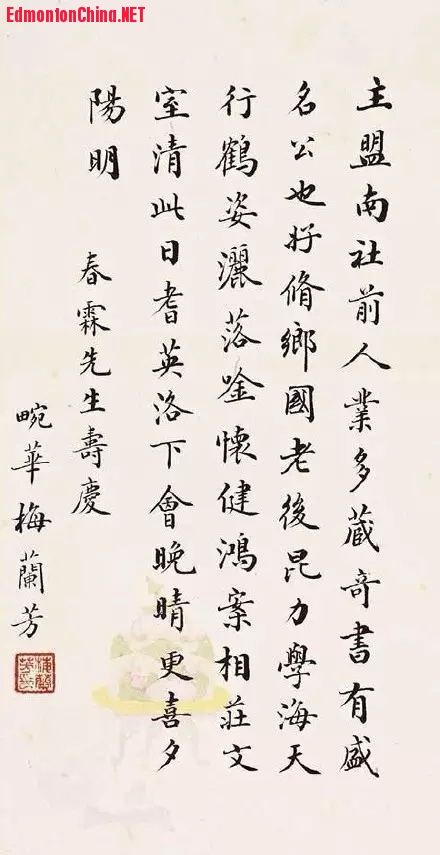 EdmontonChina.NET
主盟南社前人業多蔵奇書有盛
名公也好脩鄉國老後昆力學海天
行鶴姿灑落唫懷健鴻案相莊文
室清此日耆英洛下會晚晴更喜夕
陽明
春霖先生壽慶
畹華梅蘭芳